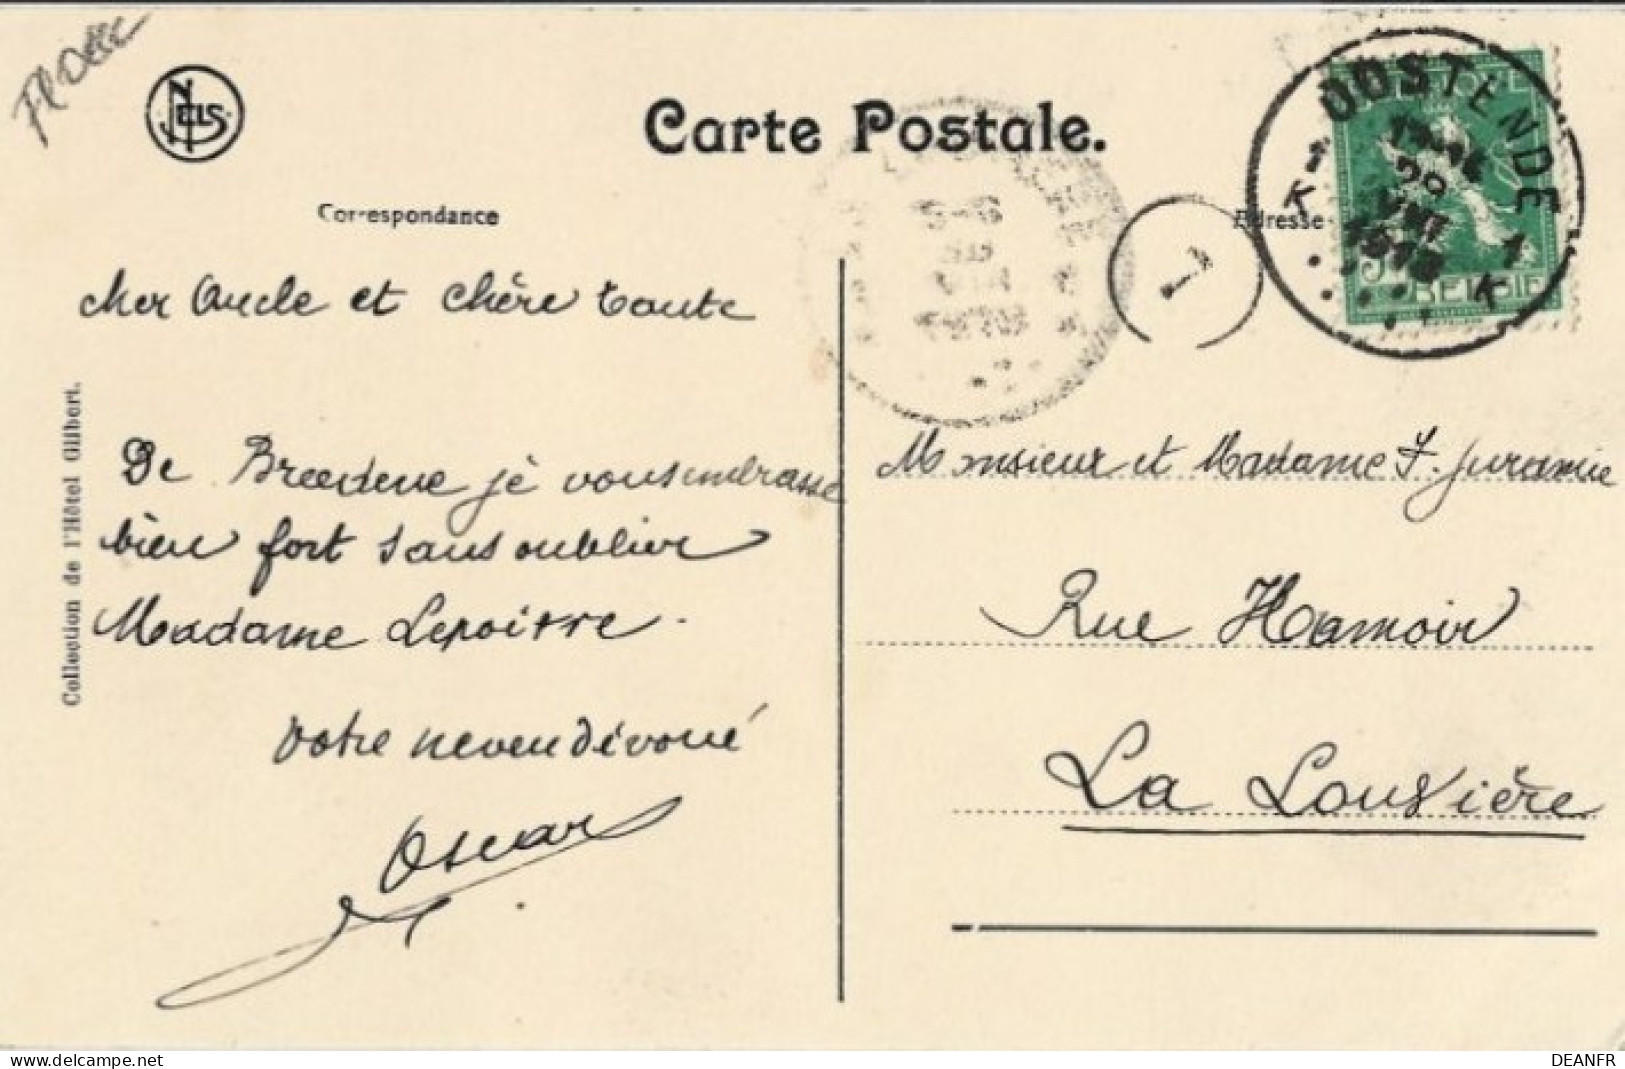 Fl Occ
NELS
Carte Postale.
Correspondance
Adresse
OOSTENDE
1 K K 1
VIII
BELGIE
1
Cher Oncle et chère tante
De Breedene je vous embrasse
bien fort sans oublier
Madame Lepoivre.
Votre neveu dévoué
Oscar
Monsieur et Madame F. Juramie
Rue Hamoir
La Louvière
Collection de l'Hôtel Gilbert.
DEANFR